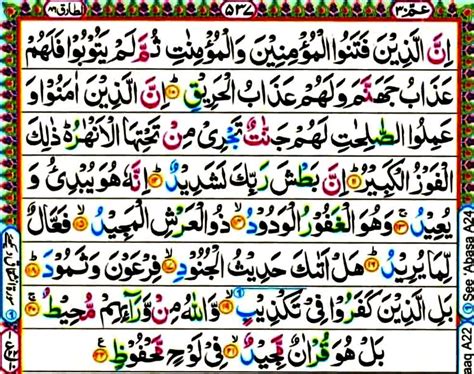 عم ٣٠ ٥٣٧ الطارق ٨٦
اِنَّ الَّذِيْنَ فَتَنُوا الْمُؤْمِنِيْنَ وَالْمُؤْمِنٰتِ ثُمَّ لَمْ يَتُوْبُوْا فَلَهُمْ
عَذَابُ جَهَنَّمَ وَلَهُمْ عَذَابُ الْحَرِيْقِ ۱۰ اِنَّ الَّذِيْنَ اٰمَنُوْا وَ
عَمِلُوا الصّٰلِحٰتِ لَهُمْ جَنّٰتٌ تَجْرِىْ مِنْ تَحْتِهَا الْاَنْهٰرُ ذٰلِكَ
الْفَوْزُ الْكَبِيْرُ ۱۱ اِنَّ بَطْشَ رَبِّكَ لَشَدِيْدٌ ۱۲ اِنَّهٗ هُوَ يُبْدِئُ وَ
يُعِيْدُ ۱۳ وَهُوَ الْغَفُوْرُ الْوَدُوْدُ ۱۴ ذُو الْعَرْشِ الْمَجِيْدُ ۱۵ فَعَّالٌ
لِّمَا يُرِيْدُ ۱۶ هَلْ اَتٰىكَ حَدِيْثُ الْجُنُوْدِ ۱۷ فِرْعَوْنَ وَثَمُوْدَ ۱۸
بَلِ الَّذِيْنَ كَفَرُوْا فِىْ تَكْذِيْبٍ ۱۹ وَّاللّٰهُ مِنْ وَّرَآئِهِمْ مُّحِيْطٌ ۲۰
بَلْ هُوَ قُرْاٰنٌ مَّجِيْدٌ ۲۱ فِىْ لَوْحٍ مَّحْفُوْظٍ ۲۲
See 'Abasa A24
aaq A22